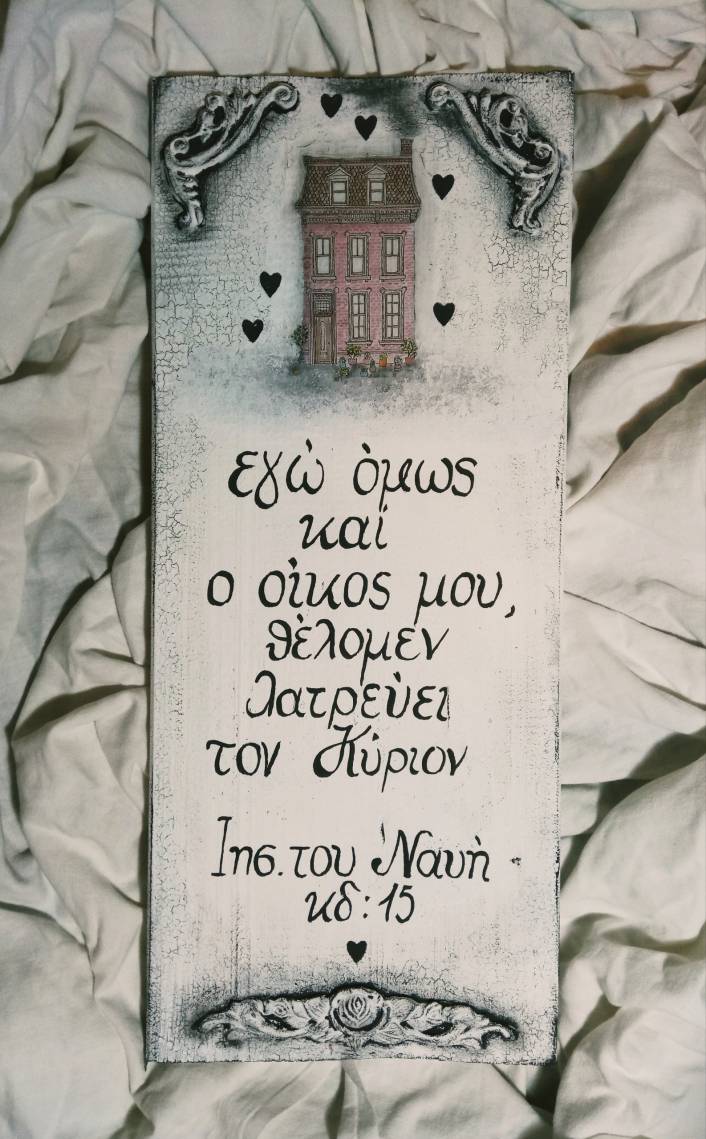 εγὼ ὸμως
καί
ο οὶκος μου,
θὲλομεν
λατρεὺει
τον Κὺριον
Ιησ. του Ναυὴ
κδ:15